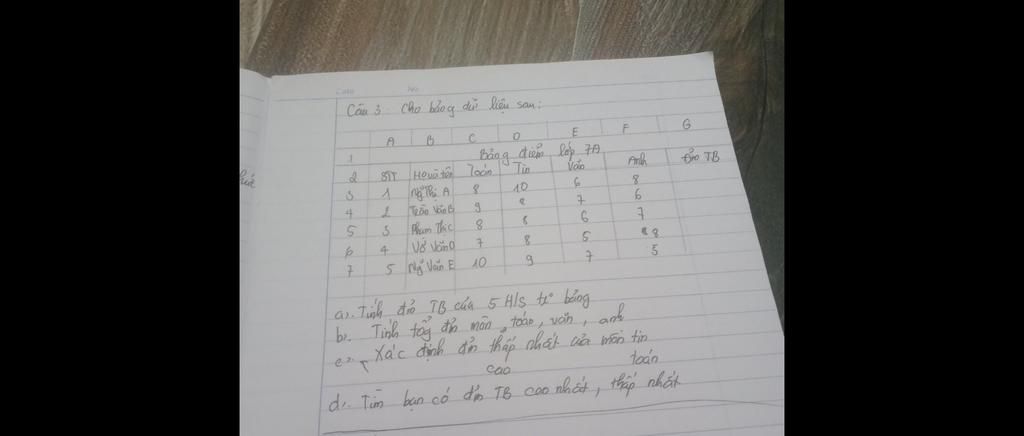 Câu 3: Cho bảng dữ liệu sau:
A B C D E F G
1 Bảng điểm lớp 7A
2 STT Họ và tên Toán Tin Văn Anh Điểm TB
3 1 Ng Thị A 8 10 6 8
4 2 Trần Văn B 9 8 7 6
5 3 Phạm Thị C 8 8 6 7
6 4 Võ Văn D 7 8 5 8
7 5 Ng Văn E 10 9 7 5
a). Tính đm TB của 5 H/S từ bảng
b). Tính tổng đm môn, toán, văn, anh
c). Xác định đm thấp nhất của môn tin
cao toán
d). Tìm bạn có đm TB cao nhất, thấp nhất